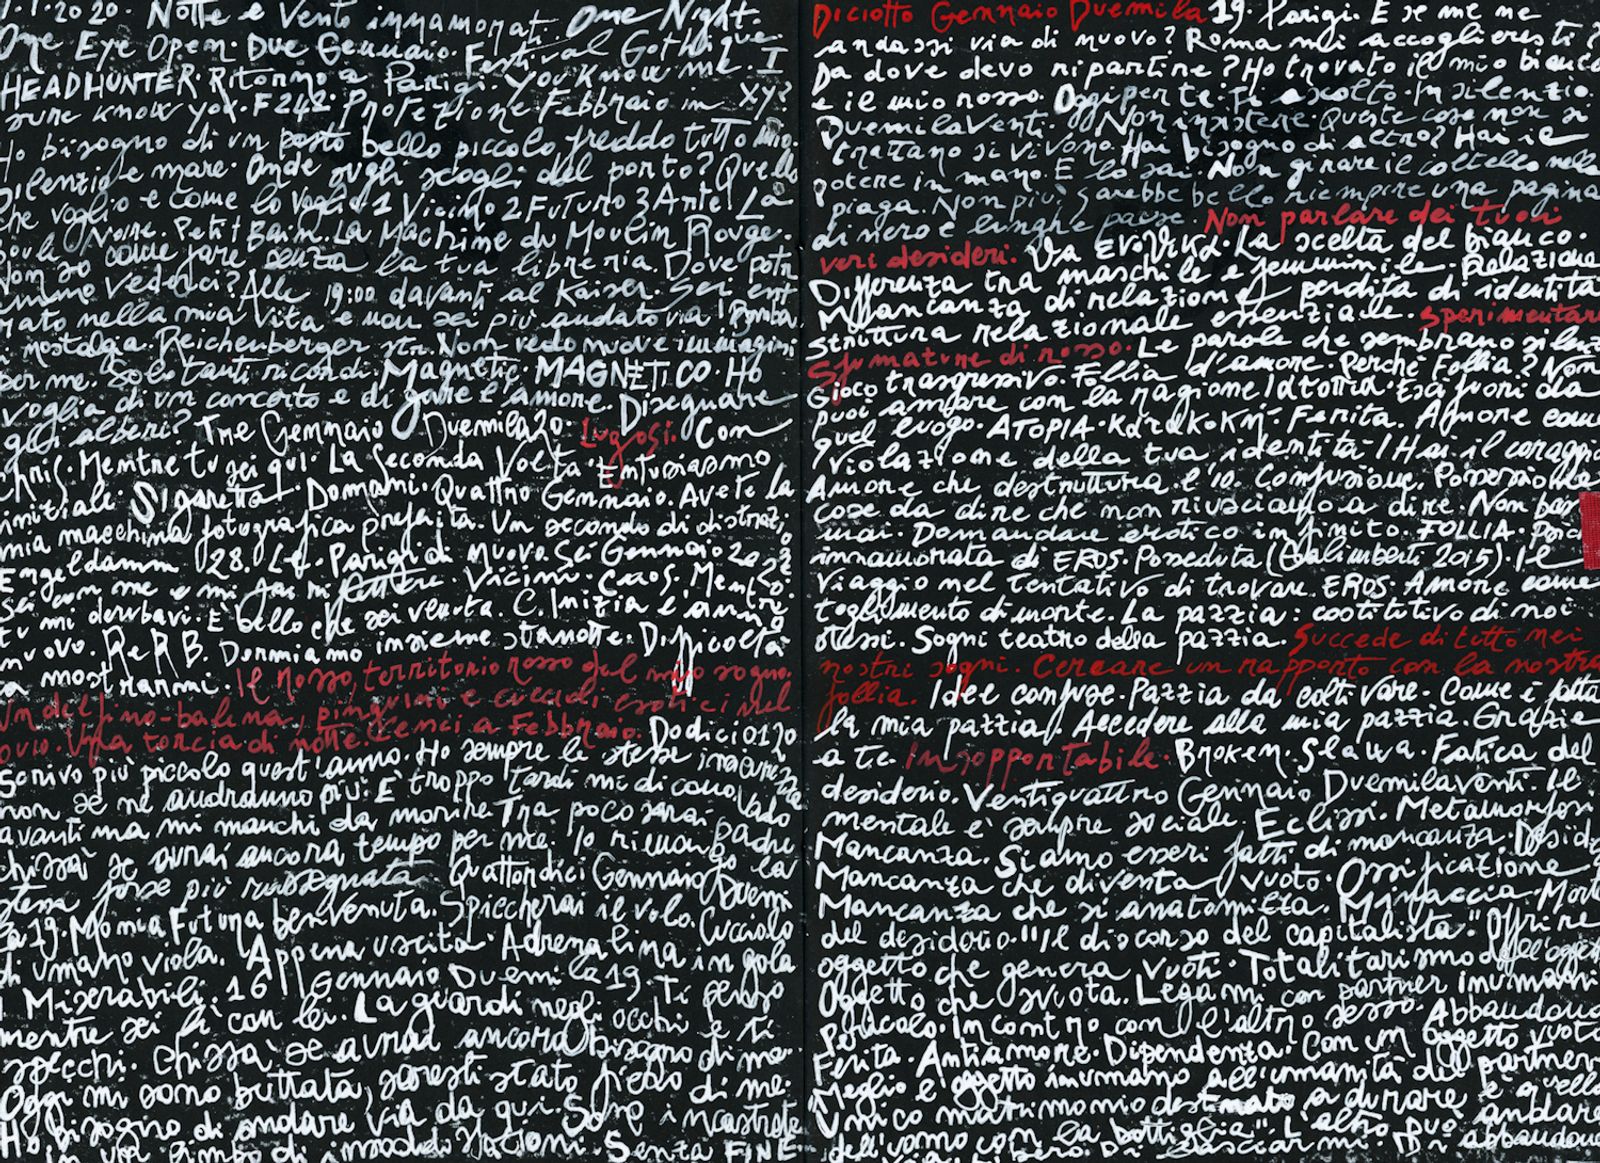 .1.2020. Notte e Vento innamorati. One Night.
One Eye Open. Due Gennaio. Festival Gothique.
HEADHUNTER. Ritorno a Parigi. You Know me. I
sure know you. F242. Protezione Febbraio in XY?
Ho bisogno di un posto bello piccolo freddo tutto mio.
Silenzio e mare. Onde sugli scogli del porto? Quello
che voglio e come lo voglio 1 Vicino 2 Futuro 3 Arte. La
Boule Noire. Petit Bain. La Machine du Moulin Rouge.
Non so come fare senza la tua libreria. Dove potr
emmo vederci? Alle 19:00 davanti al Kaiser. Sei ent
rato nella mia vita e non sei più andato via! Bomba
nostalgia. Reichenberger str. Non vedo nuove immagini
per me. Solo tanti ricordi. Magnetic. MAGNETICO. Ho
voglia di un concerto e di fare l'amore. Disegnare
gli alberi? Tre Gennaio Duemila20. Lugosi. Con
Chris. Mentre tu sei qui. La Seconda Volta. Entusiasmo
iniziale. Sigaretta. Domani. Quattro Gennaio. Avete la
mia macchina fotografica preferita. Un secondo di distrazio
Engeldamm 28. Parigi di nuovo. Sei Gennaio 2020
sei con me e mi fai Vicini. Caos. Mentre
tu mi derubavi. È bello che sei venuta. C. Inizia e
nuovo. ReRB. Dormiamo insieme stanotte. Difficoltà
a mostrarmi. Il rosso, territorio rosso del mio sogno.
Un delfino-balena, pinguini e cuccioli esotici nel
buio. Una torcia di notte. Cenci a Febbraio. Dodici0120
Scrivo più piccolo quest'anno. Ho sempre le stesse
non se ne andranno più. È troppo tardi mi dicono. Vado
avanti ma mi manchi da morire. Tra poco sarai padre
chissà se avrai ancora tempo per me. Io rimango la
stessa forse più rassegnata. Quattordici Gennaio Duemi
la19. Monia Futura benvenuta. Spiccherai il volo. Cucciolo
di umano viola. Appena uscita. Adrenalina in gola
I Miserabili. 16 Gennaio Duemila19. Ti penso
mentre sei lì con lei. La guardi negli occhi e ti
specchi. Chissà se avrai ancora bisogno di me.
Oggi mi sono buttata, saresti stato fiero di me.
Ho bisogno di andare via da qui. Sono incastrata
in un limbo di inondazioni. Senza FINE
Diciotto Gennaio Duemila19. Parigi. E se me ne
andassi via di nuovo? Roma mi accoglieresti?
Da dove devo ripartire? Ho trovato il mio bianco
e il mio rosso. Oggi per te. Ti ascolto. In silenzio.
DuemilaVenti. Non insistere. Queste cose non si
trattano si vivono. Hai bisogno di altro? Hai il
potere in mano. E lo sai. Non girare il coltello nella
piaga. Non più. Sarebbe bello riempire una pagina
di nero e lunghe pause. Non parlare dei tuoi
veri desideri. Va EVOVIVA. La scelta del bianco.
Differenza tra maschile e femminile. Relazione
Mancanza di relazione e perdita di identità
struttura relazionale essenziale. Sperimentare
Sfumature di rosso. Le parole che sembrano silenz
Gioco trasgressivo. Follia d'amore. Perché Follia? Non
puoi amare con la ragione. Idiotria. Esci fuori da
quel luogo. ATOPIA. KaraKoKry. Ferita. Amore come
Violazione della tua identità! Hai il coraggio
Amore che destruttura l'io. Confusione. Possessione
Cose da dire che non riusciamo a dire. Non bas
mai. Domandare erotico infinito. FOLLIA. Psiche
innamorata di EROS. Posseduta (Galimberti 2015). Il
viaggio nel tentativo di trovare EROS. Amore come
toglimento di morte. La pazzia: costitutivo di noi
stessi. Sogni teatro della pazzia. Succede di tutto nei
nostri sogni. Cercare un rapporto con la nostra
follia. Idee confuse. Pazzia da coltivare. Come è fatta
la mia pazzia? Accedere alla mia pazzia. Grazie
a te. Insopportabile. Broken. Slava. Fatica del
desiderio. Ventiquattro Gennaio Duemilaventi. Il
mentale è sempre sociale. Eclissi. Metamorfosi
Mancanza. Siamo esseri fatti di mancanza. Desid
Mancanza che diventa vuoto. Ossificazione
Mancanza che si anatomizza. Minaccia. Morte
del desiderio. "Il discorso del capitalista". Offrire
oggetto che genera vuoti. Totalitarismo dell'oggetto
Oggetto che svuota. Legami con partner inumani
Pericolo. Incontro con l'altro sesso. Abbandono
Ferita. Antiamore. Dipendenza. Con un oggetto vuoto
Meglio l'oggetto inumano all'umanità del partner
Unico matrimonio destinato a durare è quello
dell'uomo con la bottiglia". L'altro può andare